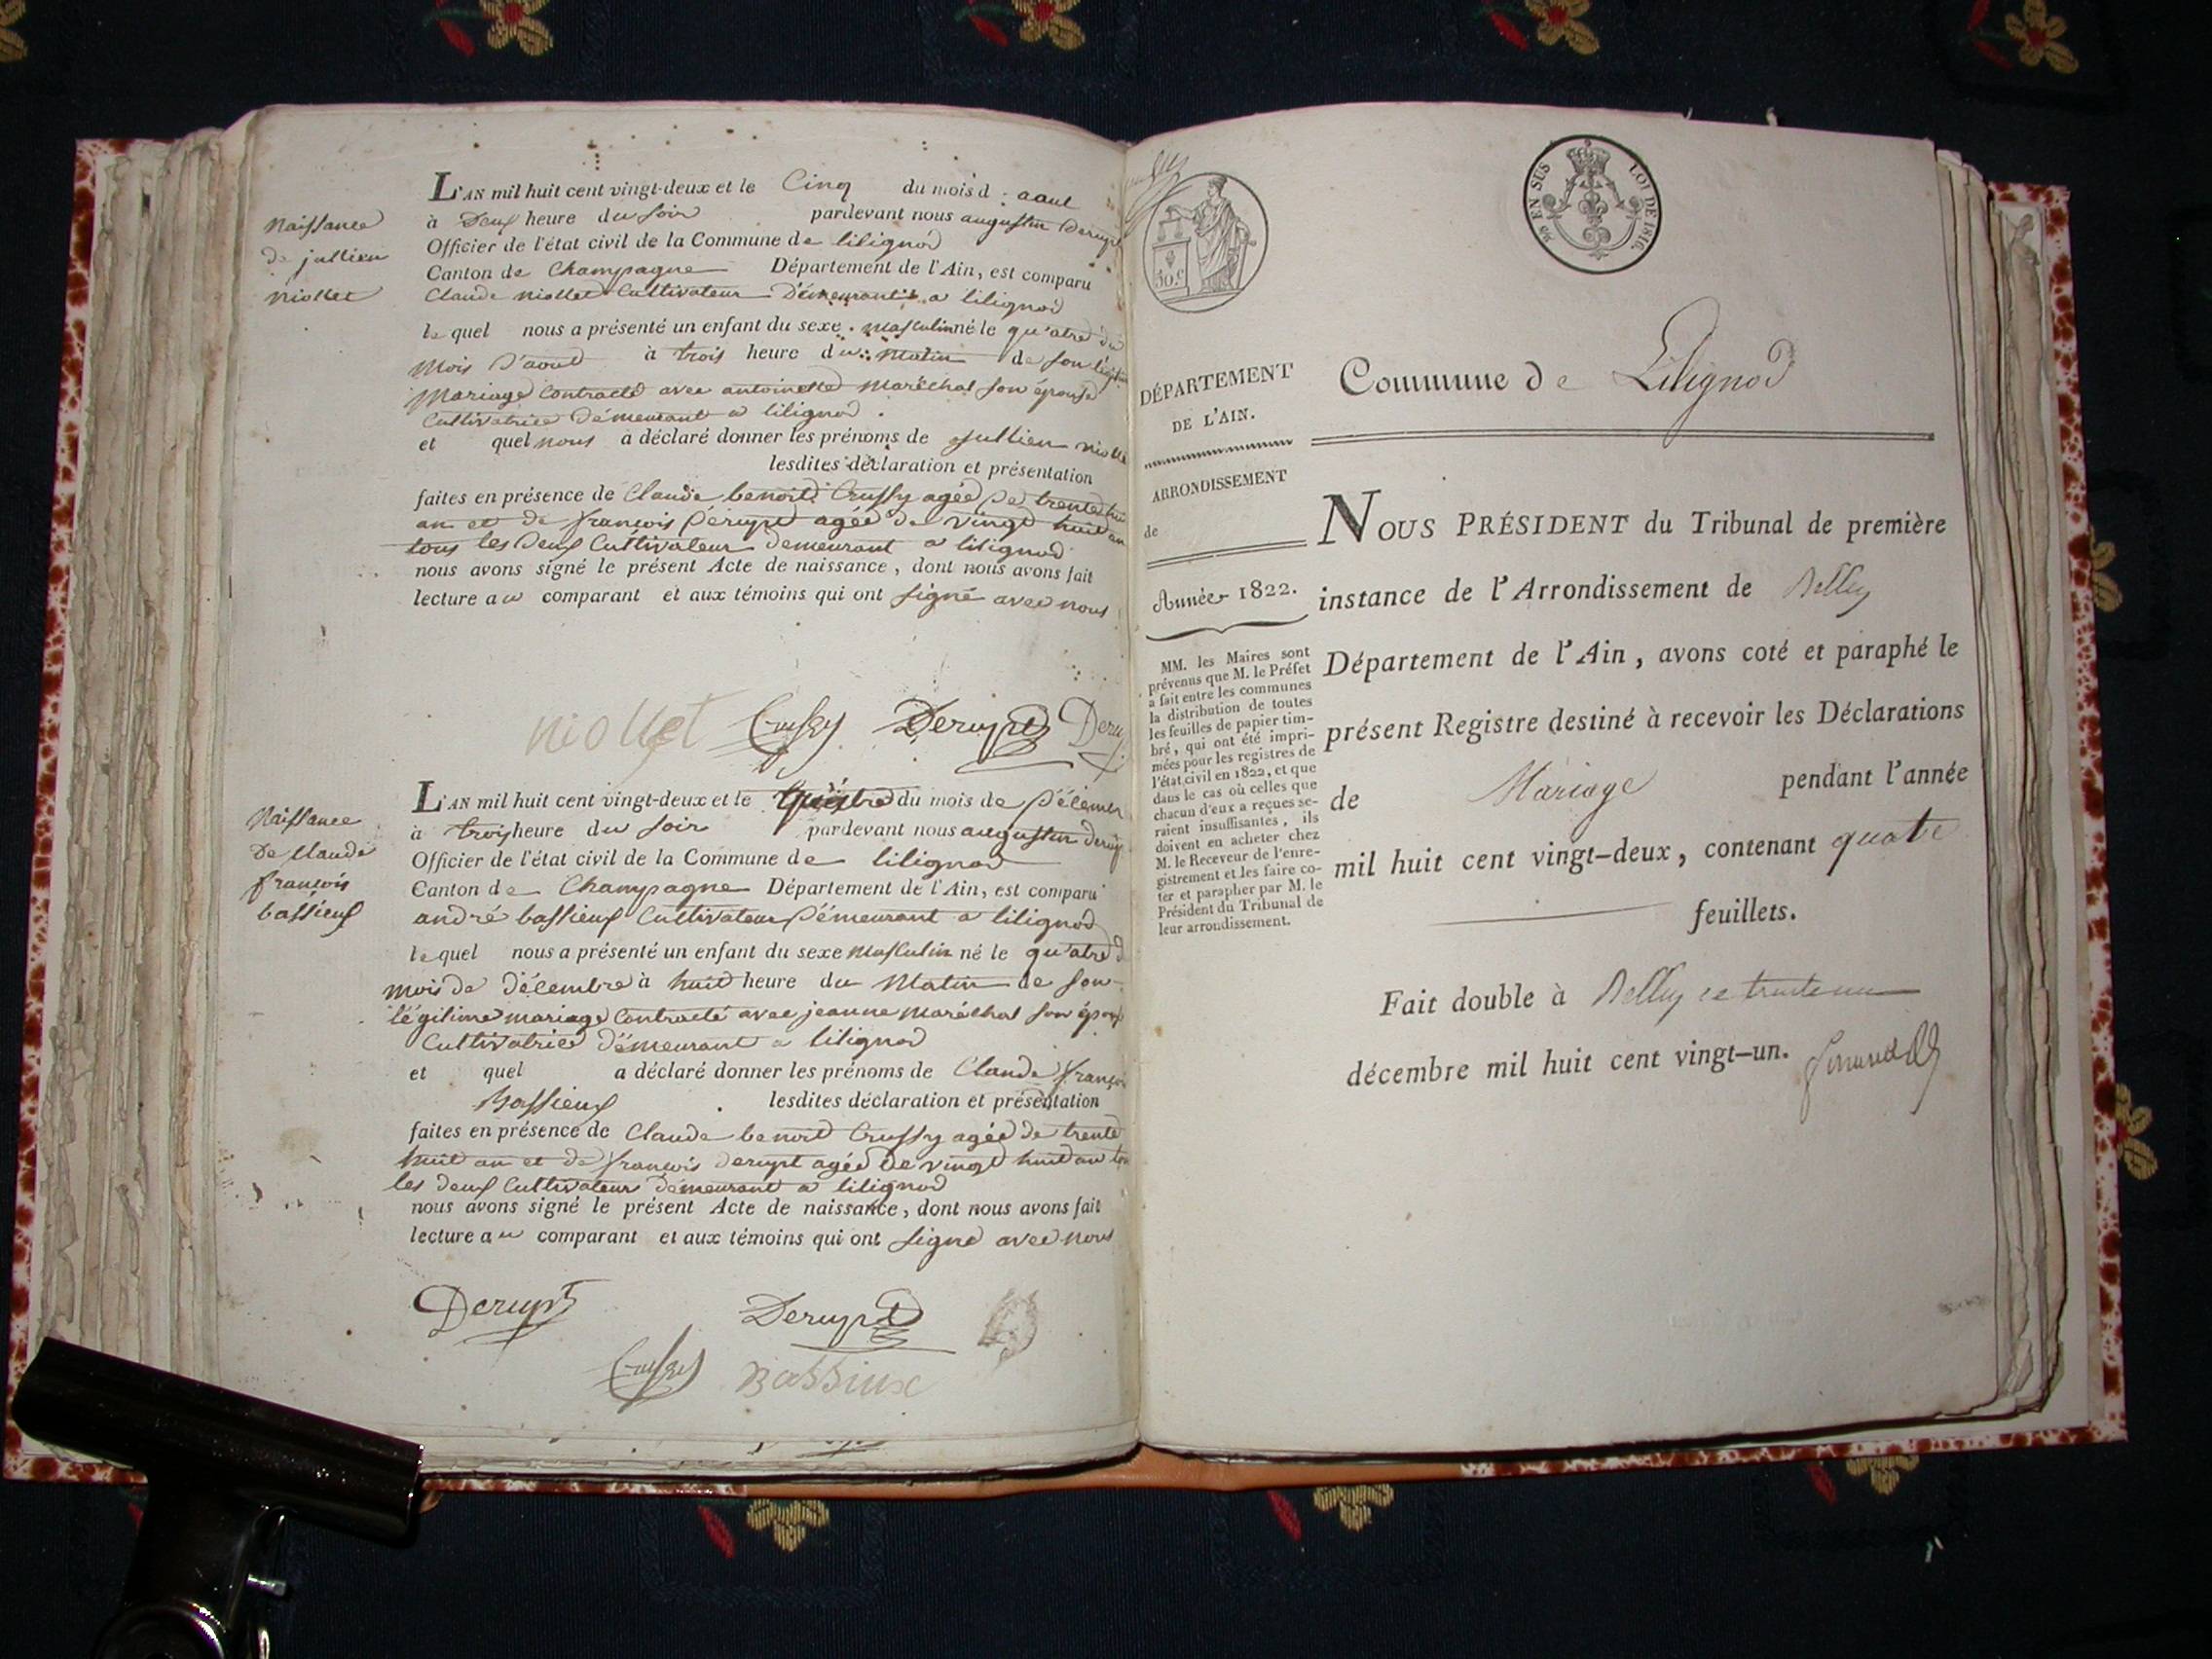 Naissance
de jullien
niollet
L'AN mil huit cent vingt-deux et le Cinq du mois d aout
à Deux heure du soir pardevant nous augustin Derupt
Officier de l'état civil de la Commune de lilignod
Canton de Champagne Département de l'Ain, est comparu
Claude niollet Cultivateur Démeurant a lilignod
le quel nous a présenté un enfant du sexe masculin né le qu'atre du
Mois D'aout à trois heure du Matin de son légitime
Mariage Contracté avec antoinette Maréchal son épouse
Cultivatrice Démeurant a lilignod.
et quel nous a déclaré donner les prénoms de Jullien niollet
lesdites déclaration et présentation
faites en présence de Claude benoit Crussy agée de trente huit
an et de françois Dérupt agée de vingt huit an
tous les Deux Cultivateur demeurant a lilignod
nous avons signé le présent Acte de naissance, dont nous avons fait
lecture au comparant et aux témoins qui ont signé avec nous
niollet Crussy Derupt Deru
Naissance
De Claude
françois
bassieux
L'AN mil huit cent vingt-deux et le du mois de Décemb
à trois heure du soir pardevant nous augustin derup
Officier de l'état civil de la Commune de lilignod
Canton de Champagne Département de l'Ain, est comparu
andré bassieux Cultivateur Démeurant a lilignod
le quel nous a présenté un enfant du sexe masculin né le qu'atre d
mois de décembre à huit heure du Matin de son
légitime mariage Contracté avec jeanne maréchal son épous
Cultivatrice Démeurant a lilignod
et quel a déclaré donner les prénoms de Claude françois
Bassieux lesdites déclaration et présentation
faites en présence de Claude benoit Crussy agée de trente
huit an et de françois derupt agée de vingt huit an tous
les deux Cultivateur demeurant a lilignod
nous avons signé le présent Acte de naissance, dont nous avons fait
lecture au comparant et aux témoins qui ont signé avec nous
Derupt Derupt
Crussy Bassiux
EN SUS LOI DE 1816.
50.c
DÉPARTEMENT
DE L'AIN.
ARRONDISSEMENT
de
Année 1822.
MM. les Maires sont
prévenus que M. le Préfet
a fait entre les communes
la distribution de toutes
les feuilles de papier tim-
bré, qui ont été impri-
mées pour les registres de
l'état civil en 1822, et que
dans le cas où celles que
chacun d'eux a reçues se-
raient insuffisantes, ils
doivent en acheter chez
M. le Receveur de l'enre-
gistrement et les faire co-
ter et parapher par M. le
Président du Tribunal de
leur arrondissement.
Commune de Lilignod
NOUS PRÉSIDENT du Tribunal de première
instance de l'Arrondissement de Belley
Département de l'Ain, avons coté et paraphé le
présent Registre destiné à recevoir les Déclarations
de Mariage pendant l'année
mil huit cent vingt-deux, contenant quatre
feuillets.
Fait double à Belley ce trente un
décembre mil huit cent vingt-un.